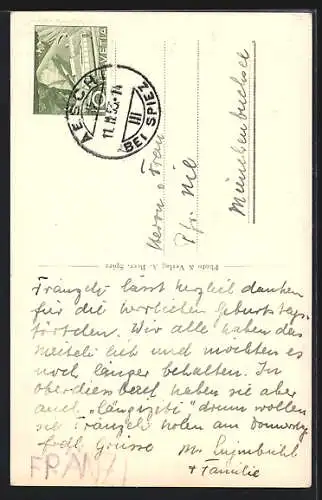 HELVETIA
10
AESCHI
11.IV.53-14
III
BEI SPIEZ
Herrn u Frau
Pfr. Nil
Münchenbuchsee
Photo & Verlag A. Burr, Spiez
Fränzeli lässt herzlich danken
für die herrlichen Geburtstags-
törtchen. Wir alle haben das
Meiteli lieb und möchten es
noch länger behalten. In
haben sie aber
auch drum wollen
sie Fränzeli holen am Donnerstg
frdl Grüsse M.
+ Familie
FRÄNZI